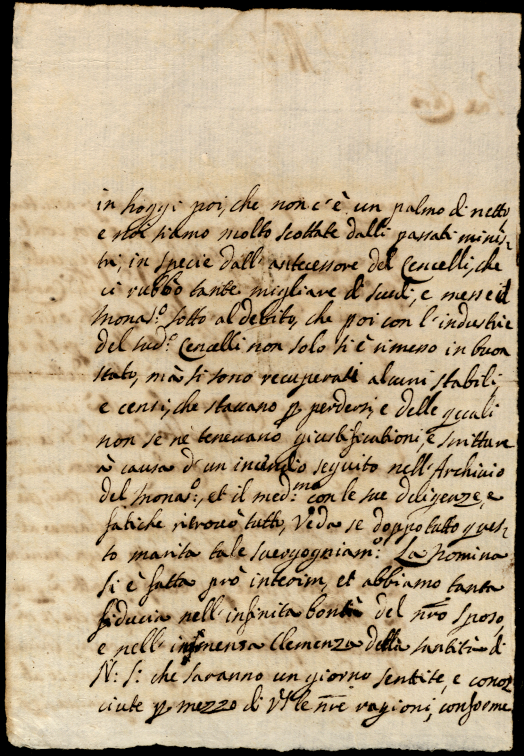 in hoggi poi, che non c'è un palmo di netto
e noi siamo molto scottate dalli passati minis-
tri, in specie dall'antecessore del Cencelli, che
ci rubbò tante migliare di scudi, e messe il
Monas:o sotto al debito, che poi con l'industrie
del sud:o Cencelli non solo si è rimesso in buon
stato, mà si sono recuperati alcuni stabili,
e censi, che stavano p perdersi, e delle quali
non se ne tenevano giustificationi, e scritture
à causa d'un incendio seguito nell'Archivio
del Monas:o, et il med:mo con le sue diligenze, e
fatiche ritrovò tutto, Veda se doppo tutto ques-
to merita tale svergogniam:o. La Nomina
si è fatta prò interim, et abbiamo tanta
fiducia nell'infinita bontà del nro sposo,
e nell'immensa Clemenza della santità di
N: S: che saranno un giorno sentite, e conos-
ciute p mezzo di VS le nre ragioni, conforme